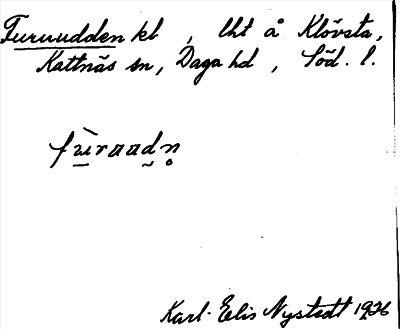 Furuudden kl , lht å Klövsta,
Kattnäs sn, Daga hd , Söd. l.
fùrɑɑdn̥
Karl-Eelis Nystedt 1926